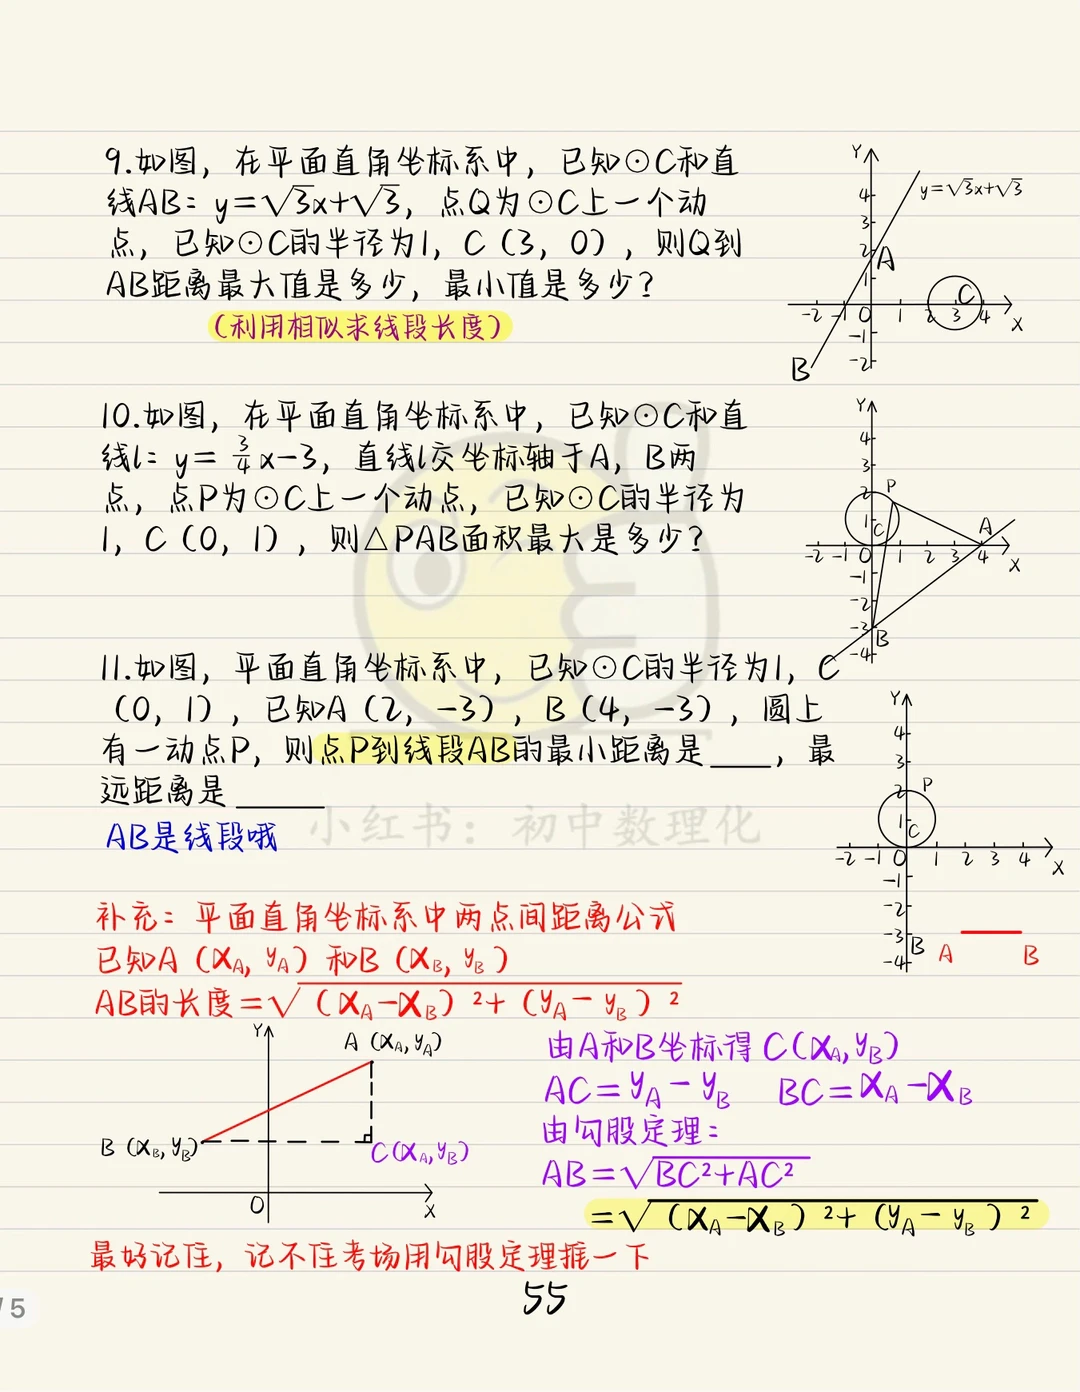 9.如图，在平面直角坐标系中，已知⊙C和直
线AB：y=√3x+√3，点Q为⊙C上一个动
点，已知⊙C的半径为1，C（3，0），则Q到
AB距离最大值是多少，最小值是多少？
（利用相似求线段长度）
Y
4
3
2
1
y=√3x+√3
A
C
-2 -1 0 1 2 3 4 X
-1
-2
B
10.如图，在平面直角坐标系中，已知⊙C和直
线l：y= 3/4 x-3，直线l交坐标轴于A，B两
点，点P为⊙C上一个动点，已知⊙C的半径为
1，C（0，1），则△PAB面积最大是多少？
Y
4
3
2
1
P
C
A
-2 -1 0 1 2 3 4 X
-1
-2
-3
-4
B
11.如图，平面直角坐标系中，已知⊙C的半径为1，C
（0，1），已知A（2，-3），B（4，-3），圆上
有一动点P，则点P到线段AB的最小距离是____，最
远距离是______
AB是线段哦
小红书：初中数理化
Y
4
3
2
1
P
C
-2 -1 0 1 2 3 4 X
-1
-2
-3
-4
B A B
补充：平面直角坐标系中两点间距离公式
已知A（xA，yA）和B（xB，yB）
AB的长度=√（xA-xB）²+（yA-yB）²
Y
A（xA，yA）
B（xB，yB）
C（xA，yB）
O
X
由A和B坐标得C（xA，yB）
AC=yA-yB BC=xA-xB
由勾股定理：
AB=√BC²+AC²
=√（xA-xB）²+（yA-yB）²
最好记住，记不住考场用勾股定理推一下
55
/5